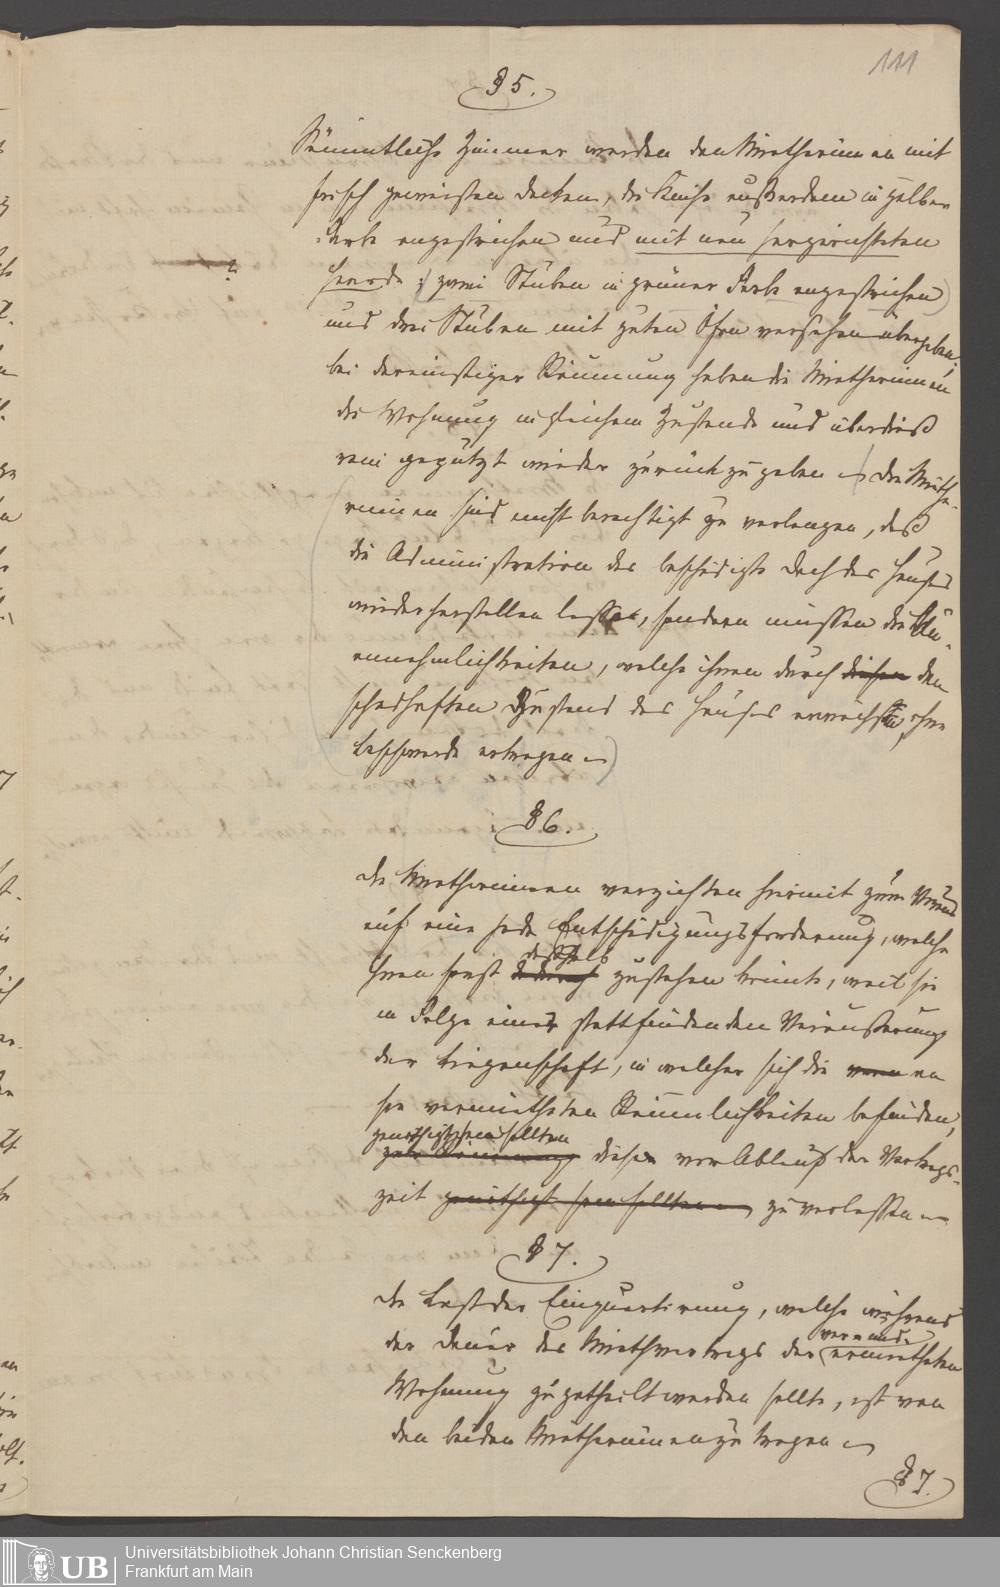 111
§ 5.
Sämmtliche Zimmer werden den Mietherinnen mit
frisch geweisten Decken, die Küche außerdem in gelber
Farbe angestrichen und mit neu hergerichteten
Heerde, zwei Stuben in grüner Farbe angestrichen)
?
und drei Stuben mit guten Öfen versehen übergeben;
bei dereinstiger Räumung haben die Mietherinnen
die Wohnung in gleichem Zustande und überdieß
rein geputzt wieder zurückzugeben. die Miethe-
rinnen sind nicht berechtigt zu verlangen, daß
die Administration das beschädigte Dach des Hauses
wiederherstellen lasse, sondern müssen die Un-
annehmlichkeiten, welche ihnen durch diesen den
schadhaften Zustand des Hauses erwachsen, ohne
Beschwerde ertragen.)
§ 6.
die Mietherinnen verzichten hiermit zum Voraus
auf eine jede Entschädigungsforderung, welche
ihnen sonst dadurch deßhalb zustehen könnte, weil sie
in Folge einer stattfindenden Veräußerung
der Liegenschaft, in welcher sich die an
sie vermietheten Räumlichkeiten befinden,
genöthigt sein sollten
zur Räumung diese vor Ablauf der Vertrags-
zeit genöthigt sein sollten zu verlassen.
§ 7.
die Last der Einquartirung, welche während
der Dauer des Miethvertrags der vermietheten
Wohnung zugetheilt werden sollte, ist von
den beiden Mietherinnen zu tragen.
§ 7.
UB
Universitätsbibliothek Johann Christian Senckenberg
Frankfurt am Main